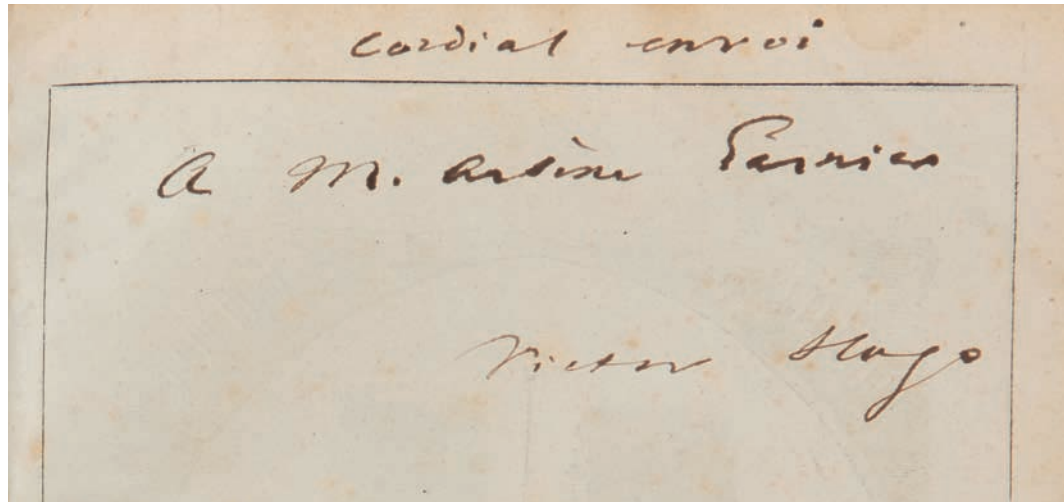 cordial envoi
A M. Arsène Garnier
Victor Hugo